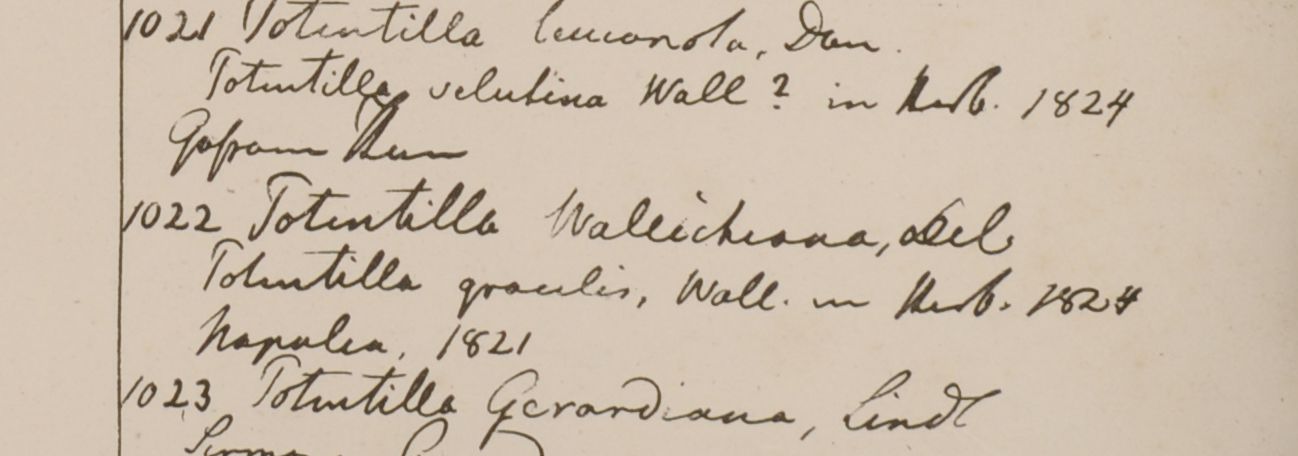 1021 Potentilla leuconota, Don.
Potentilla velutina Wall? in Herb. 1824
Gossam Than
1022 Potentilla Wallichiana, Del
Potentilla gracilis, Wall. in Herb. 1824
Napalia, 1821
1023 Potentilla Gerardiana, Lindl